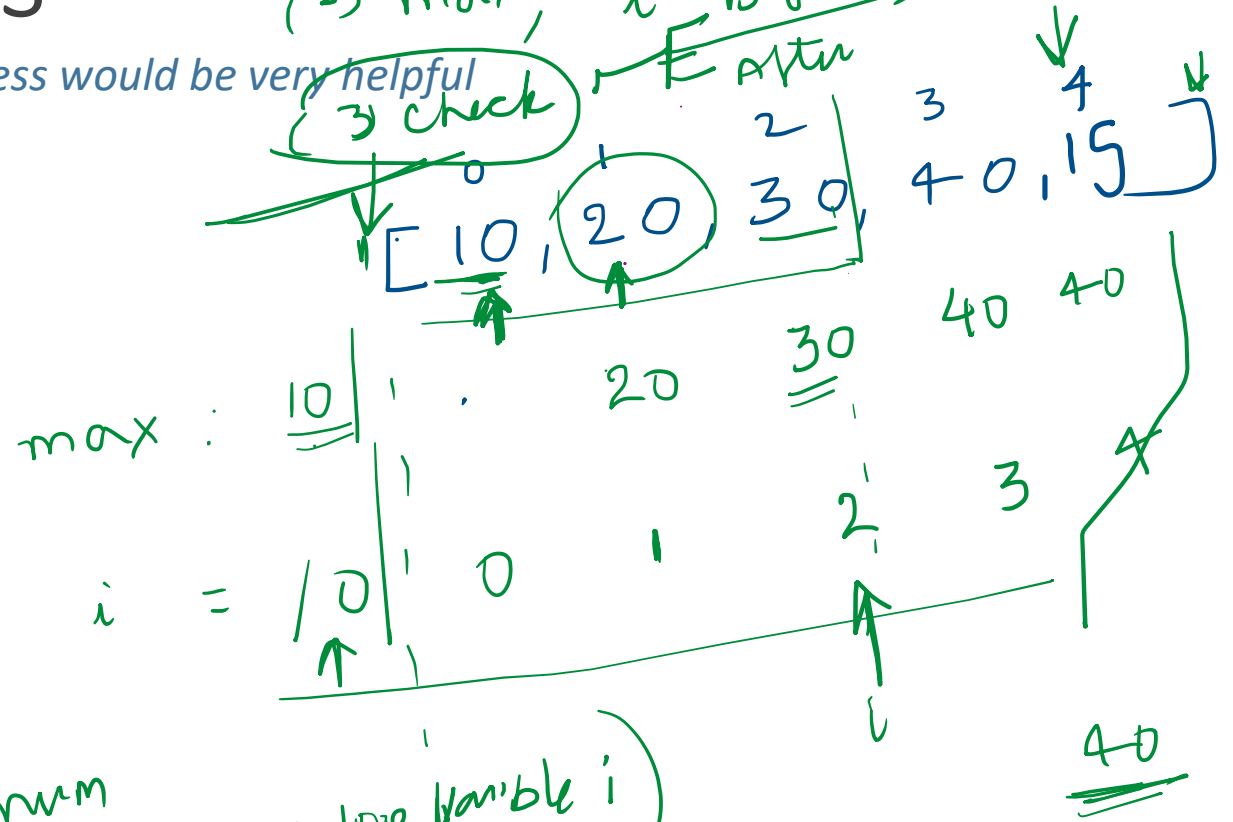 ess would be very helpful
3) check
After
0 1 2 3 4
[10, 20, 30, 40, 15]
max : 10 20 30 40 40
i = 0 0 1 2 3 4
i
40
num
variable i)